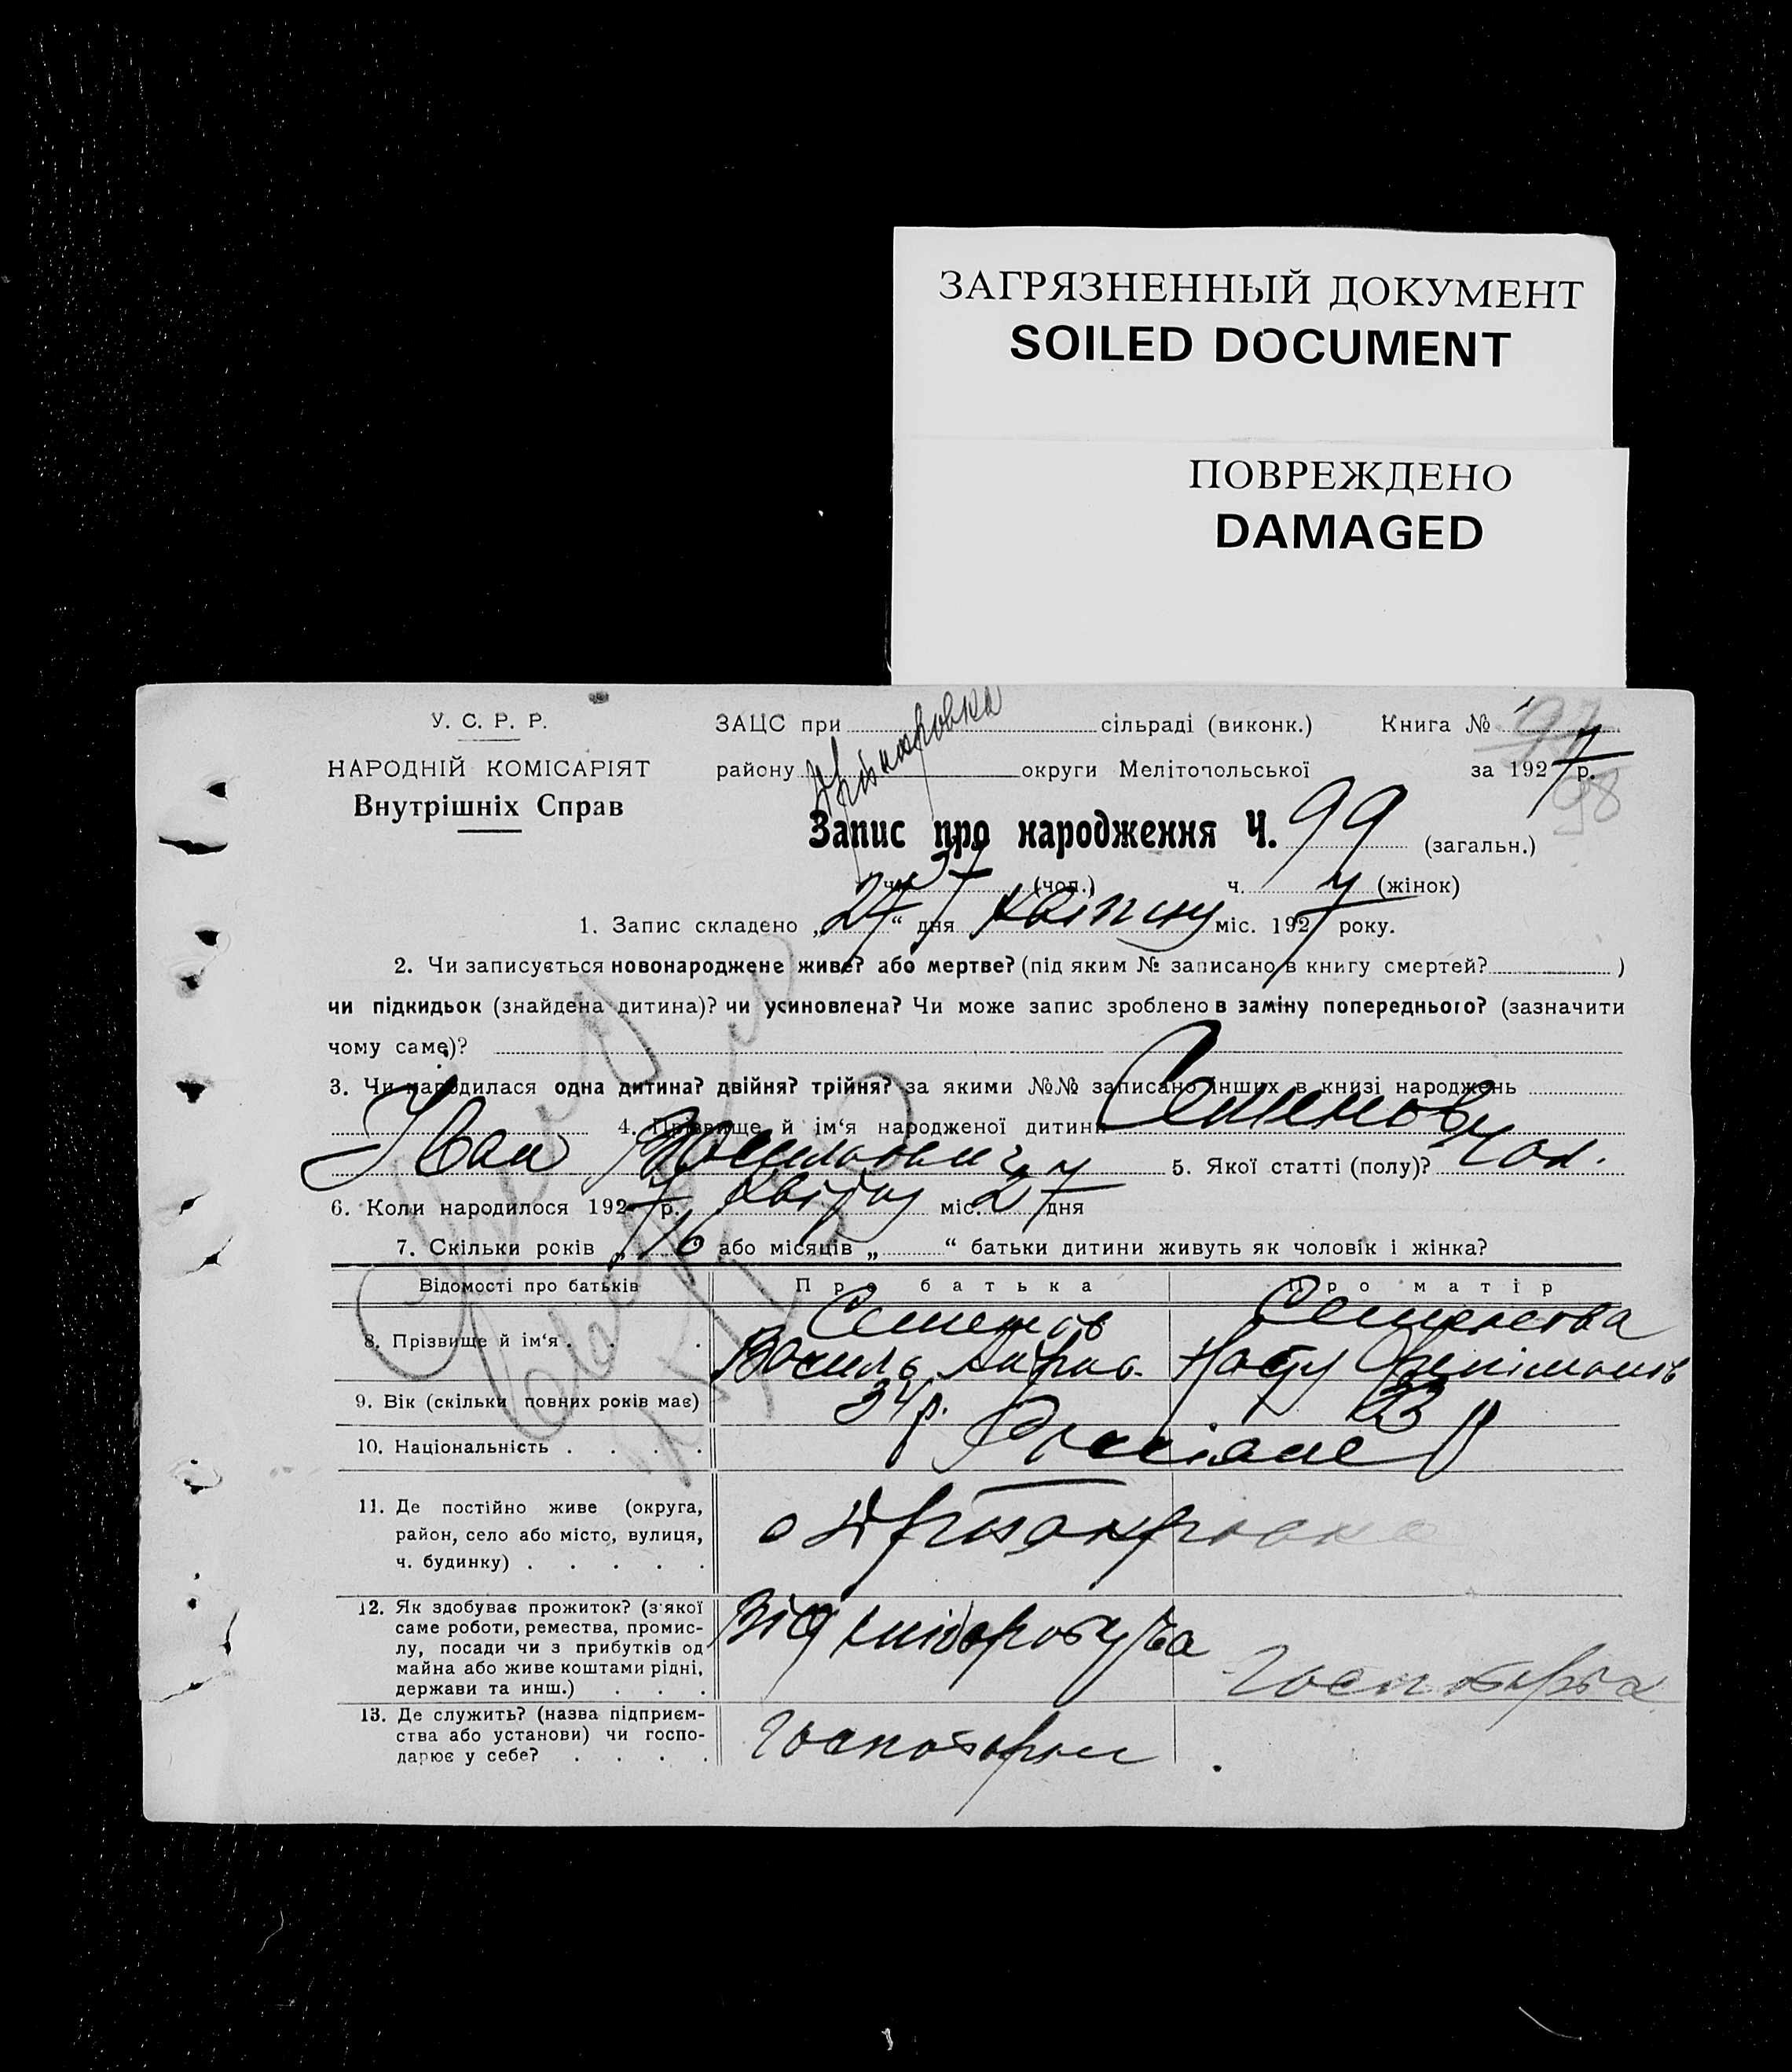 ЗАГРЯЗНЕННЫЙ ДОКУМЕНТ
SOILED DOCUMENT
ПОВРЕЖДЕНО
DAMAGED
У. С. Р. Р.
НАРОДНІЙ КОМІСАРІЯТ
Внутрішніх Справ
ЗАЦС при сільраді (виконк.) Книга № 1
району округи Мелітопольської за 1927 р.
98
Запис про народження Ч. 99 (загальн.)
ч. 57 (чол.) ч. (жінок)
1. Запис складено „27“ дня квітня міс. 1927 року.
2. Чи записується новонароджене живе? або мертве? (під яким № записано в книгу смертей? )
чи підкидьок (знайдена дитина)? чи усиновлена? Чи може запис зроблено в заміну попереднього? (зазначити
чому саме)?
3. Чи народилася одна дитина? двійня? трійня? за якими №№ записано інших в книзі народжень
4. Прізвище й ім‘я народженої дитини Семенов
Іван Васильович 5. Якої статті (полу)? чол.
6. Коли народилося 1927 р. квітня міс. 27 дня
7. Скільки років „16 або місяців „ “ батьки дитини живуть як чоловік і жінка?
Відомості про батьків Про батька Про матір
8. Прізвище й ім‘я . . . Семенов Семенова
Василь
9. Вік (скільки повних років має) 34 р. 33
10. Національність . . . . Россіяне
11. Де постійно живе (округа,
район, село або місто, вулиця,
ч. будинку) . . . . .
12. Як здобуває прожиток? (з‘якої
саме роботи, ремества, промис-
лу, посади чи з прибутків од
майна або живе коштами рідні,
держави та инш.) . . .
Від хліборобства
13. Де служить? (назва підприєм-
ства або установи) чи госпо-
дарює у себе? . . . .